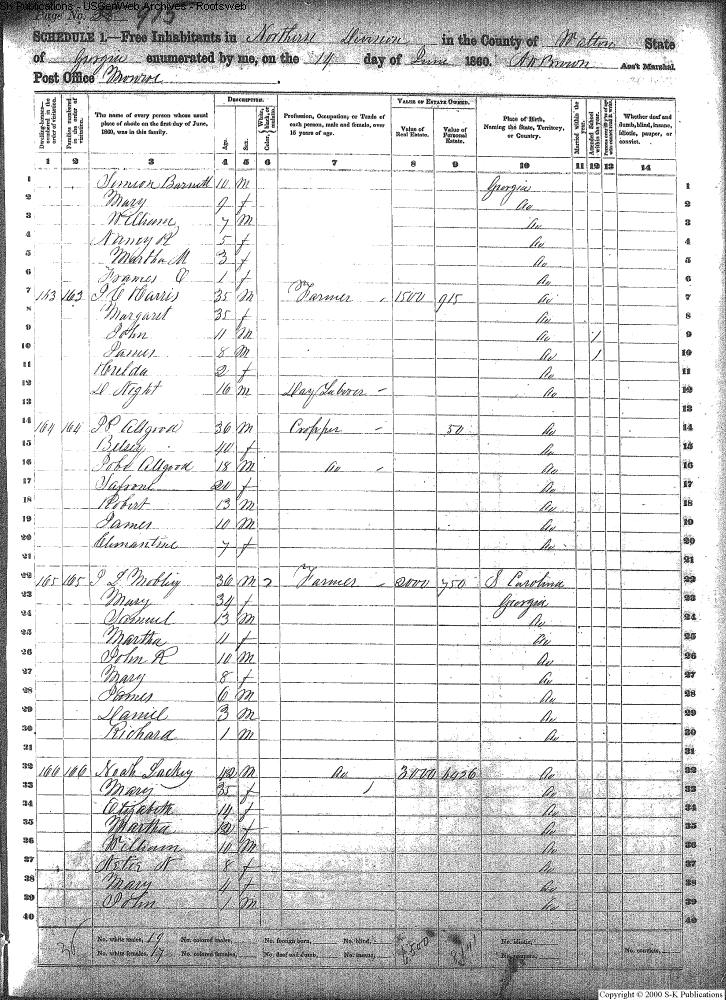 S-K Publications - USGenWeb Archives - Rootsweb
Page No. 913
SCHEDULE 1.—Free Inhabitants in Northern Division in the County of Walton State
of Georgia enumerated by me, on the 14 day of June 1860. Ass't Marshal.
Post Office Monroe
Dwelling-houses numbered in the order of visitation. Families numbered in the order of visitation. The name of every person whose usual place of abode on the first day of June, 1860, was in this family. DESCRIPTION. Age. Sex. Color, White, black, or mulatto. Profession, Occupation, or Trade of each person, male and female, over 15 years of age. VALUE OF ESTATE OWNED. Value of Real Estate. Value of Personal Estate. Place of Birth, Naming the State, Territory, or Country. Married within the year. Attended School within the year. Whether deaf and dumb, blind, insane, idiotic, pauper, or convict.
1 2 3 4 5 6 7 8 9 10 11 12 13 14
1 Simeon Barnett 10 m Georgia 1
2 Mary 9 f Do 2
3 William 7 m Do 3
4 Nancy 5 f Do 4
5 Martha M 3 f Do 5
6 1 f Do 6
7 163 163 Harris 35 m Farmer 1500 915 Do 7
8 Margaret 35 f Do 8
9 John 11 m Do 1 9
10 James 8 m Do 1 10
11 2 f Do 11
12 Night 16 m Day Laborer Do 12
13 13
14 164 164 Allgood 36 m Cropper 50 Do 14
15 Betsey 40 f Do 15
16 Allgood 18 m Do Do 16
17 20 f Do 17
18 Robert 13 m Do 18
19 James 10 m Do 19
20 Clemantine 7 f Do 20
21 21
22 165 165 Mobley 36 m Farmer 2000 750 S Carolina 22
23 Mary 34 f Georgia 23
24 Samuel 13 m Do 24
25 Martha 11 f Do 25
26 John R 10 m Do 26
27 Mary 8 f Do 27
28 James 6 m Do 28
29 Daniel 3 m Do 29
30 Richard 1 m Do 30
31 31
32 166 166 Noah Lackey 42 m Do 3000 Do 32
33 Mary 35 f Do 33
34 Elizabeth 14 f Do 34
35 Martha 12 f Do 35
36 William 10 m Do 36
37 8 f Do 37
38 Mary 4 f Do 38
39 John 1 m Do 39
40 40
No. white males, 19 No. colored males, No. foreign born, No. blind, 6500 No. idiotic,
No. white females, 17 No. colored females, No. deaf and dumb, No. insane, No. paupers, No. convicts,
Copyright © 2000 S-K Publications